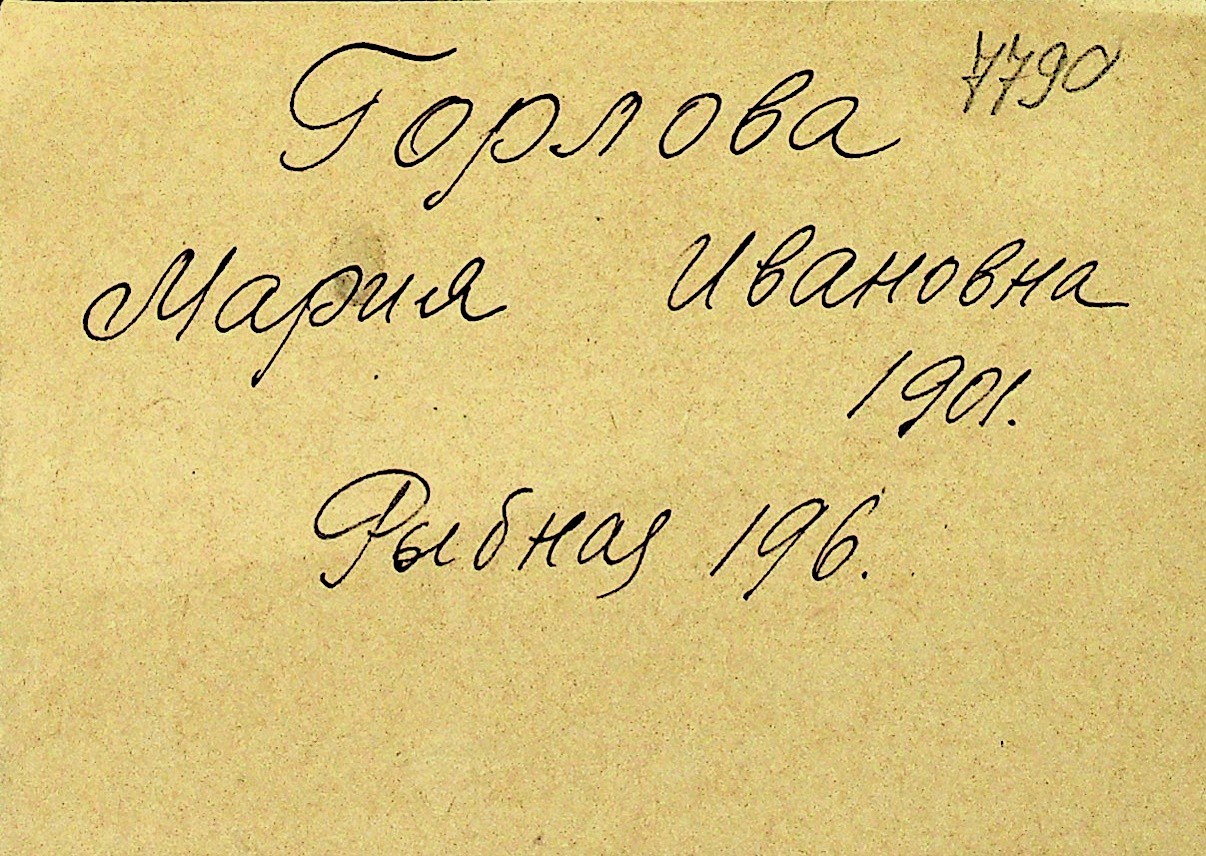 7790
Горлова
Мария Ивановна
1901.
Рыбная 196.